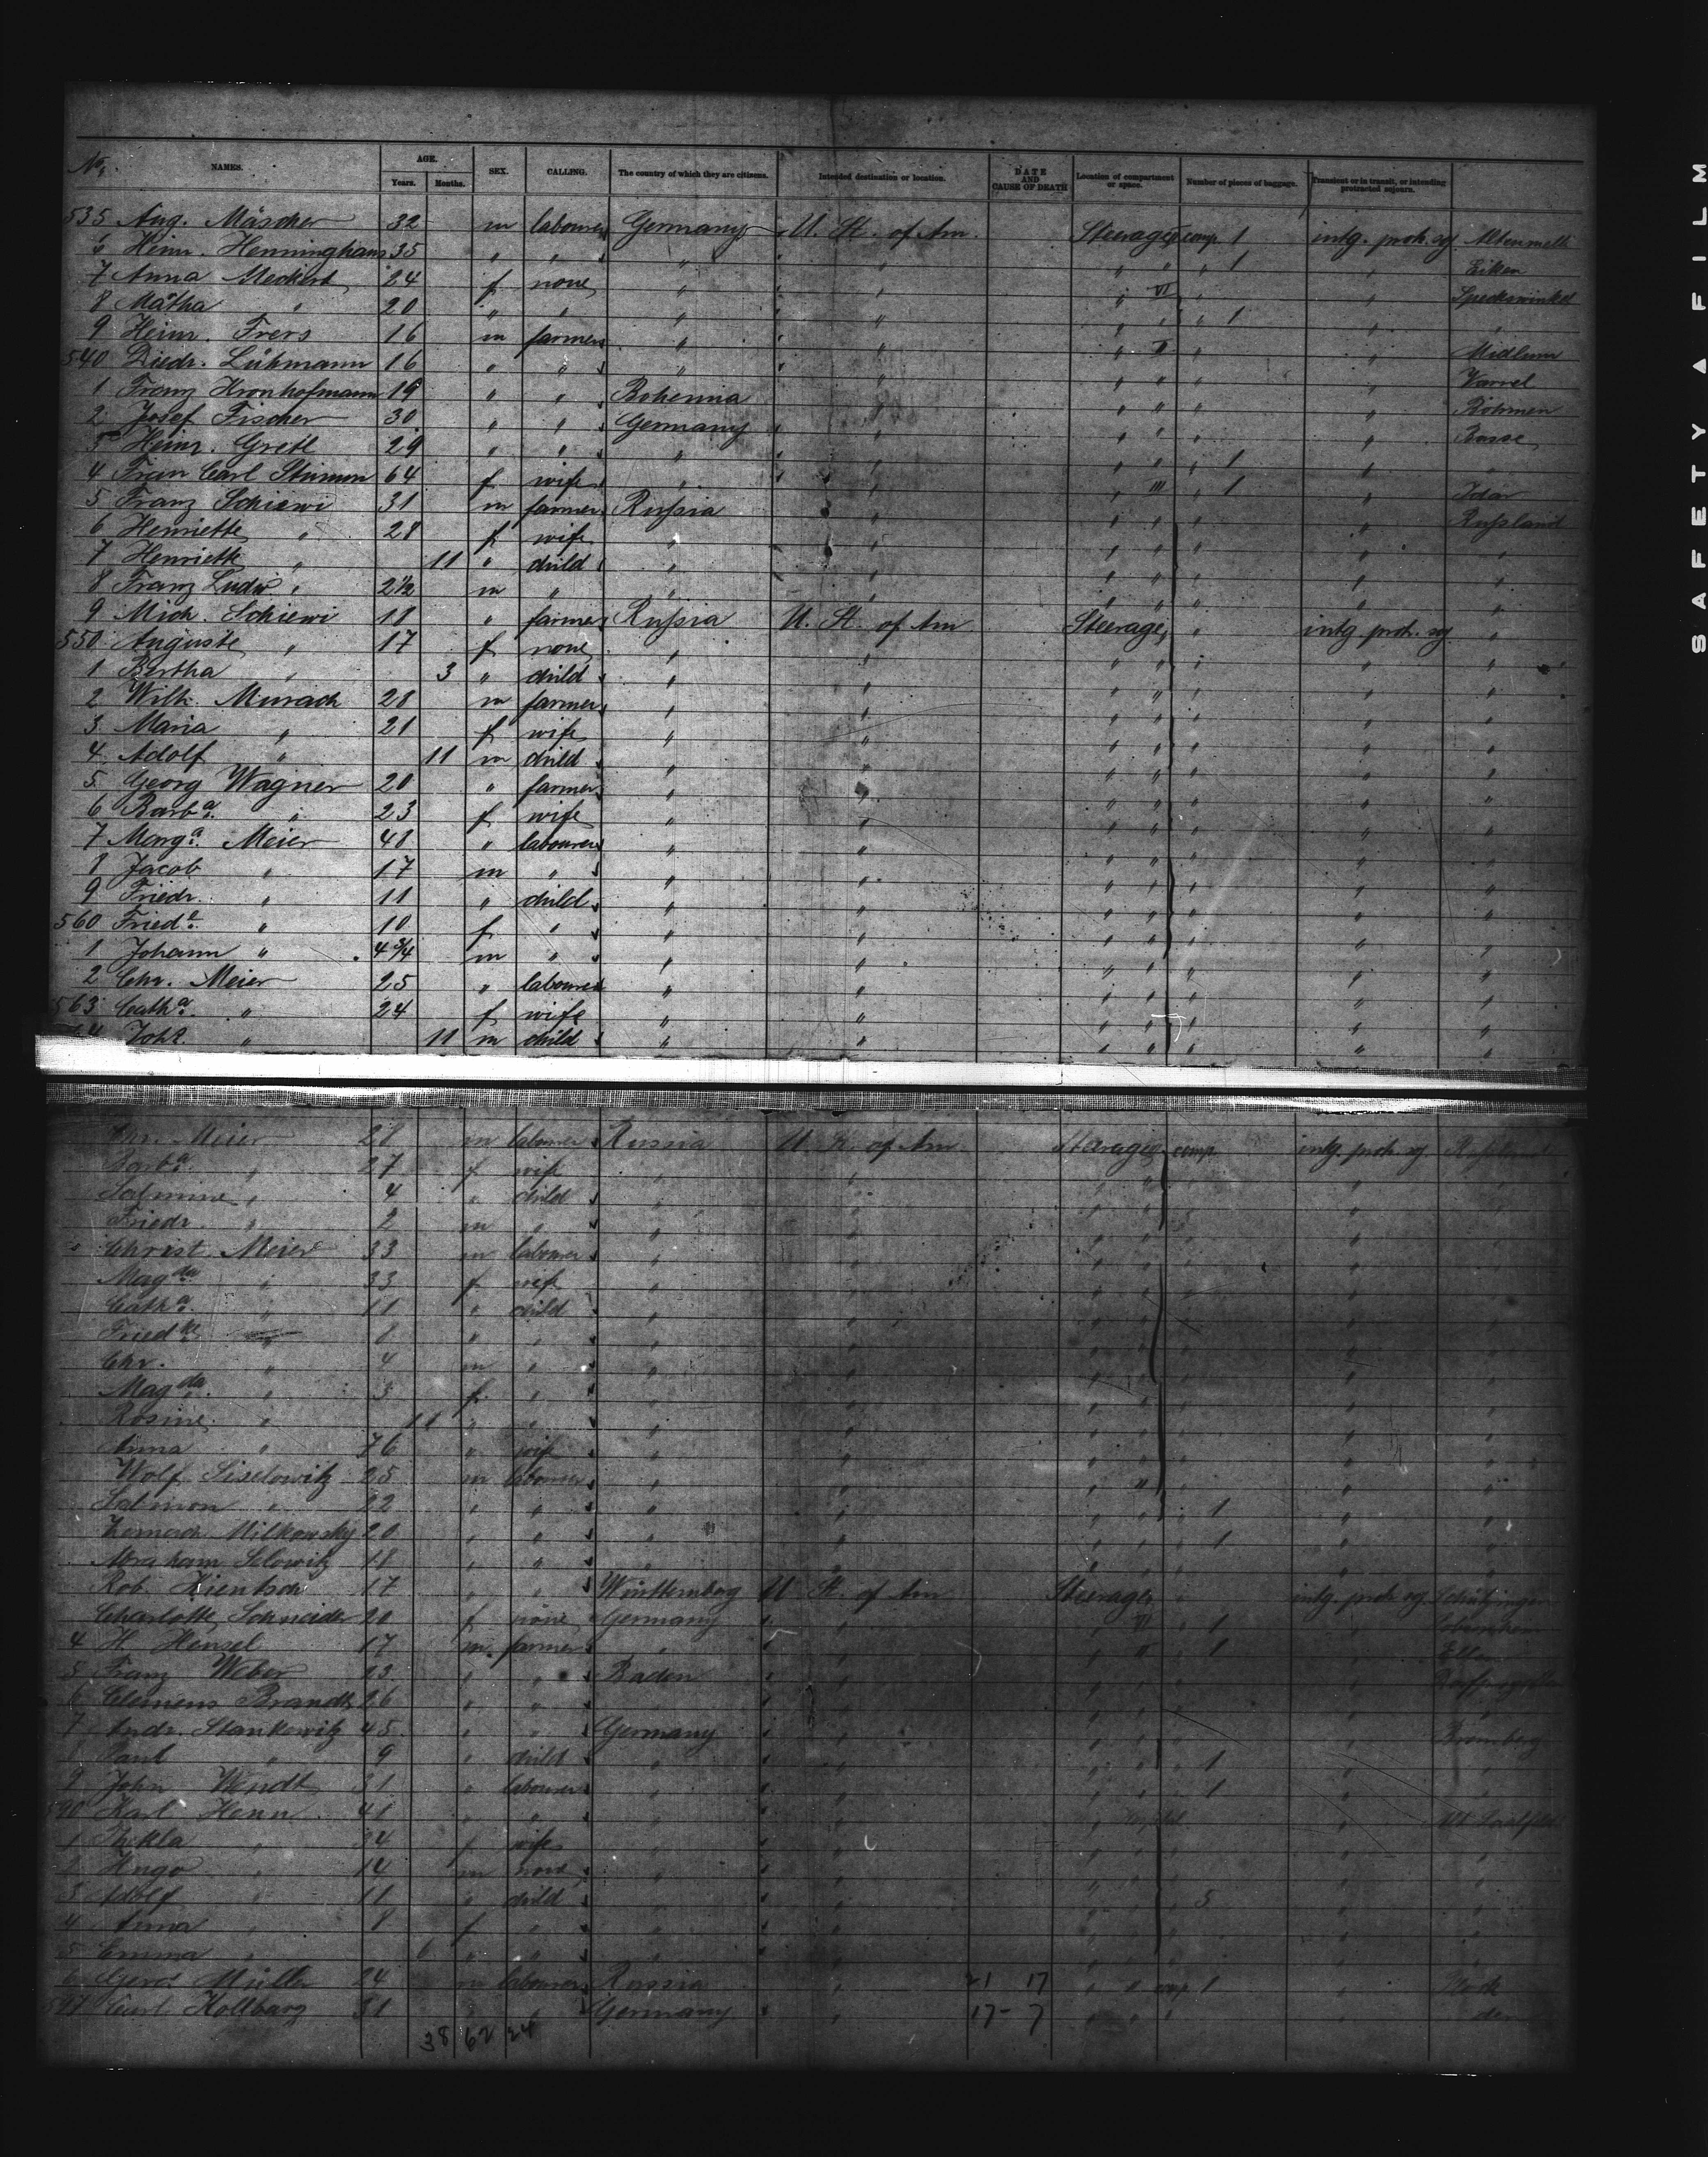 No. NAMES. AGE. Years. Months. SEX. CALLING. The country of which they are citizens. Intended destination or location. DATE AND CAUSE OF DEATH Location of compartment or space. Number of pieces of baggage. Transient or in transit, or intending protracted sojourn.
535 Aug. Mäscher 32 m labourer Germany U. St. of Am. Steerage comp. 1 intg. protr. soj
6 Heinr. Henninghaus 35 " " " " " " " 1 " Eiken
7 Anna Meckert 24 f none " " " VI " " Speckswinkel
8 Mätha " 20 " " " " " " " 1 " "
9 Heinr. Frers 16 m farmer " " " II " " Midlum
540 Diedr. Lühmann 16 " " " " " " " " Varrel
1 Franz Kronhofmann 19 " " Bohemia " " " " " Böhmen
2 Josef Fischer 30 " " Germany " " " " "
3 Heinr. Grete 29 " " " " " " " 1 " "
4 Frau Carl Stumm 64 f wife " " " III " 1 " Idar
5 Franz Schiewi 31 m farmer Rußia " " " " " Rußland
6 Henriette " 28 f wife " " " " " " "
7 Henriette " 11 " child " " " " " " "
8 Franz Ludw " 2½ m " " " " " " " "
9 Mich. Schiewi 18 " farmer Rußia U. St. of Am Steerage " intg protr. soj "
550 Auguste " 17 f none " " " " " " "
1 Bertha " 3 " child " " " " " " "
2 Wilh. Murach 28 m farmer " " " " " " "
3 Maria " 21 f wife " " " " " " "
4 Adolf " 11 m child " " " " " " "
5 Georg Wagner 20 " farmer " " " " " " "
6 Barba. " 23 f wife " " " " " " "
7 Marga. Meier 48 " labourer " " " " " " "
8 Jacob " 17 m " " " " " " " "
9 Friedr. " 11 " child " " " " " " "
560 Friede. " 10 f " " " " " " " "
1 Johann " 4¾ m " " " " " " " "
2 Chr. Meier 25 " labourer " " " " " " "
563 Catha. " 24 f wife " " " " " " "
64 Joh. " 11 m child " " " " " " "
Chr. Meier 28 m labourer Russia U. St. of Am Steerage comp. intg. protr. soj. Rußland
Barba. " 27 f wife " " " " " "
Salmine " 4 " child " " " " " "
Friedr. " 2 m " " " " " " "
Christ. Meier 33 m labourer " " " " " "
Magda " 33 f wife " " " " " "
Catha. " 11 " child " " " " " "
Friedke " 8 " " " " " " " "
Chr. " 4 m " " " " " " "
Magda. " 3 f " " " " " " "
Rosine " 11 " " " " " " " "
Anna " 76 " wife " " " " " "
Wolf Siselowitz 25 m labourer " " " " " "
Salmon " 22 " " " " " " 1 " "
Milkowsky 20 " " " " " " 1 " "
Abraham Selowitz 18 " " " " " " " "
Rob. Kientsch 17 " " Württemberg U. St. of Am Steerage " intg. protr. soj.
Charlotte Schneider 20 f none Germany " " VI " 1 "
4 H. Hensel 17 m farmer " " " II " 1 "
5 Franz Weber 13 " " Baden " " " " "
6 Clemens Brandt 26 " " " " " " " "
7 Andr. Stankowitz 45 " " Germany " " " " " Bromberg
8 Paul " 9 " child " " " " 1 " "
9 John Wendt 31 " labourer " " " " 1 " "
590 Karl Henn 41 " " " " "
1 Thekla " 34 f wife " " " " " "
2 Hugo " 14 m none " " " " " "
3 Adolf " 11 " child " " " " 5 " "
4 Anna " 8 f " " " " " " "
5 Emma " 6 " " " " " " " "
6 Gerd. Müller 24 m labourer Russia " 21 17 " " comp 1 "
597 Carl Kollbarg 31 " " Germany " 17 - 7 " " " "
38 62 24
SAFETY A FILM